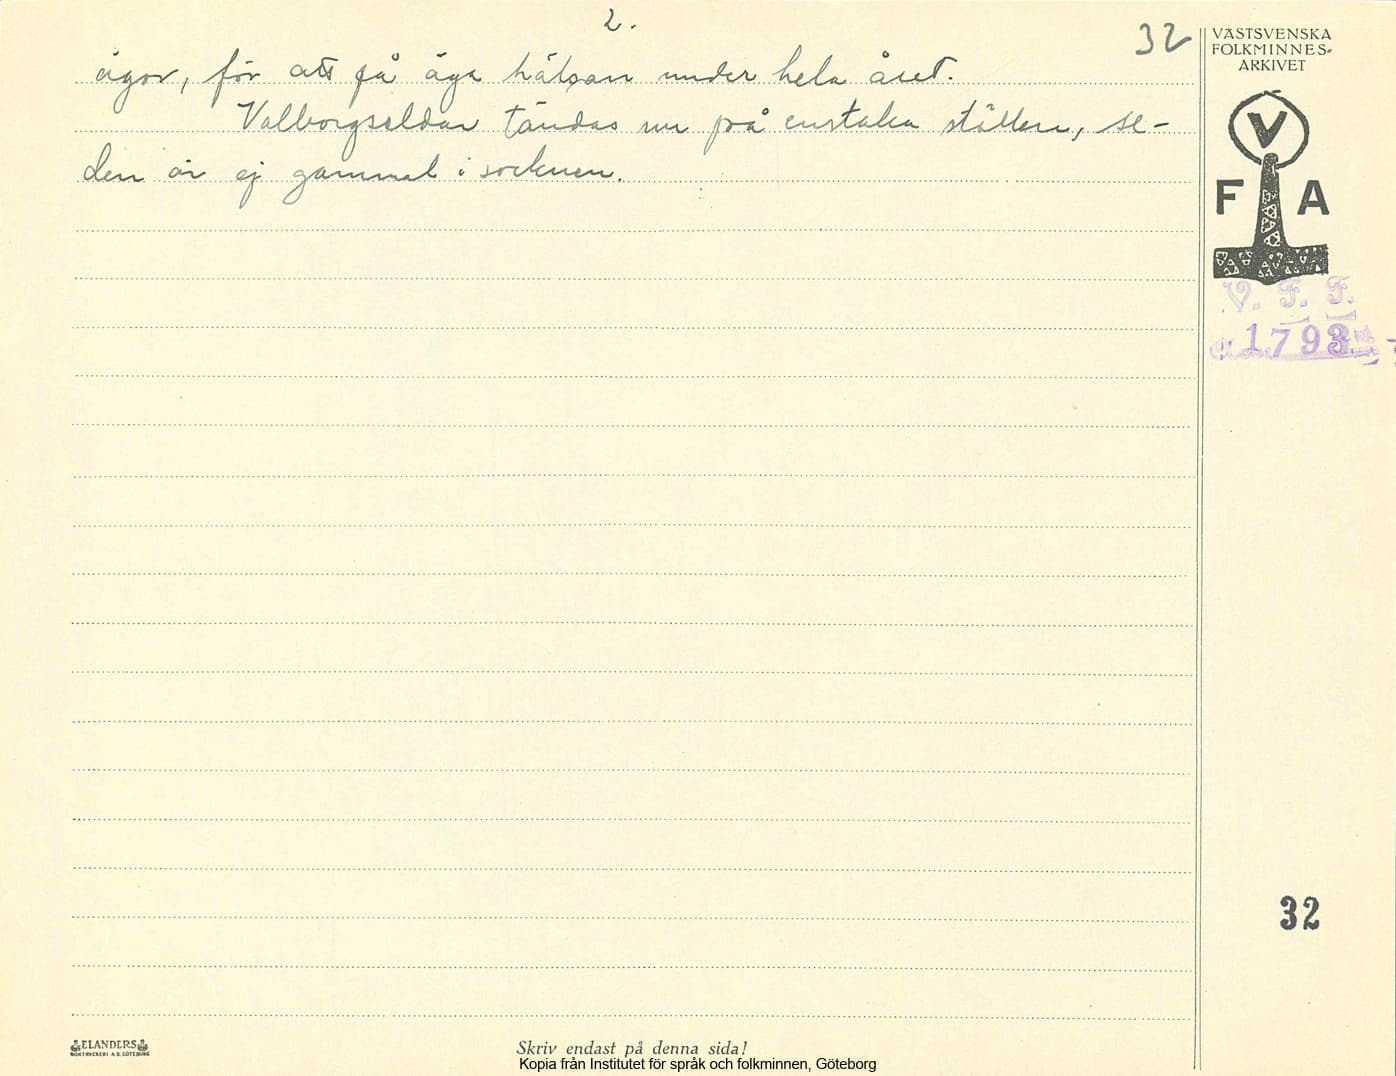 2.
32
ägor, för att få äga hälsan under hela året.
Valborgseldar tändas nu på enstaka ställen, se-
den är ej gammal i socknen.
VÄSTSVENSKA
FOLKMINNES-
ARKIVET
V
F A
V. F. F.
1793
32
ELANDERS
BOKTRYCKERI A.B. GÖTEBORG
Skriv endast på denna sida!
Kopia från Institutet för språk och folkminnen, Göteborg